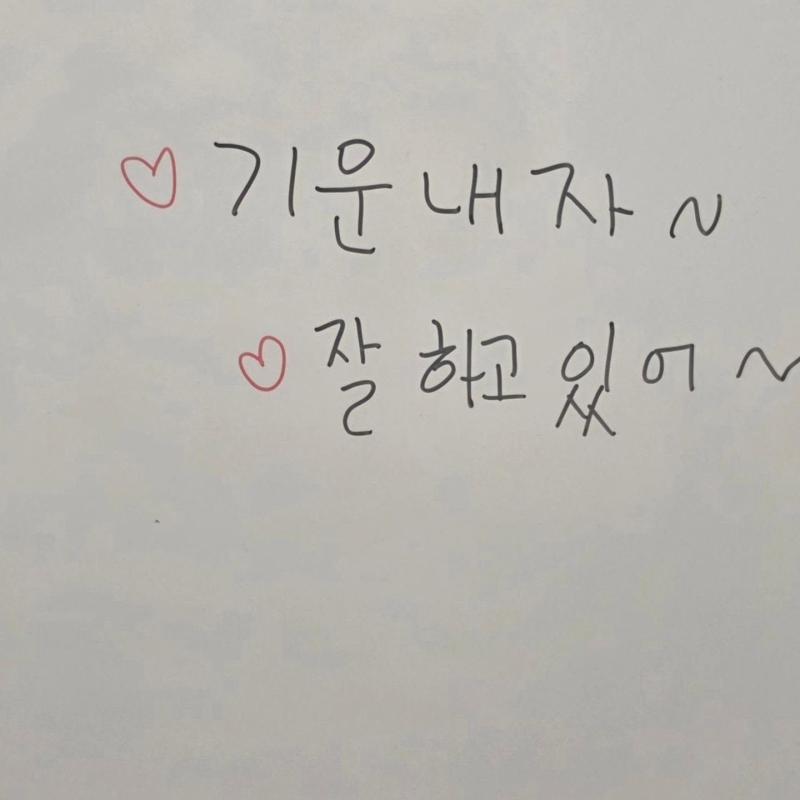 ♡ 기운내자~
♡ 잘 하고 있어~